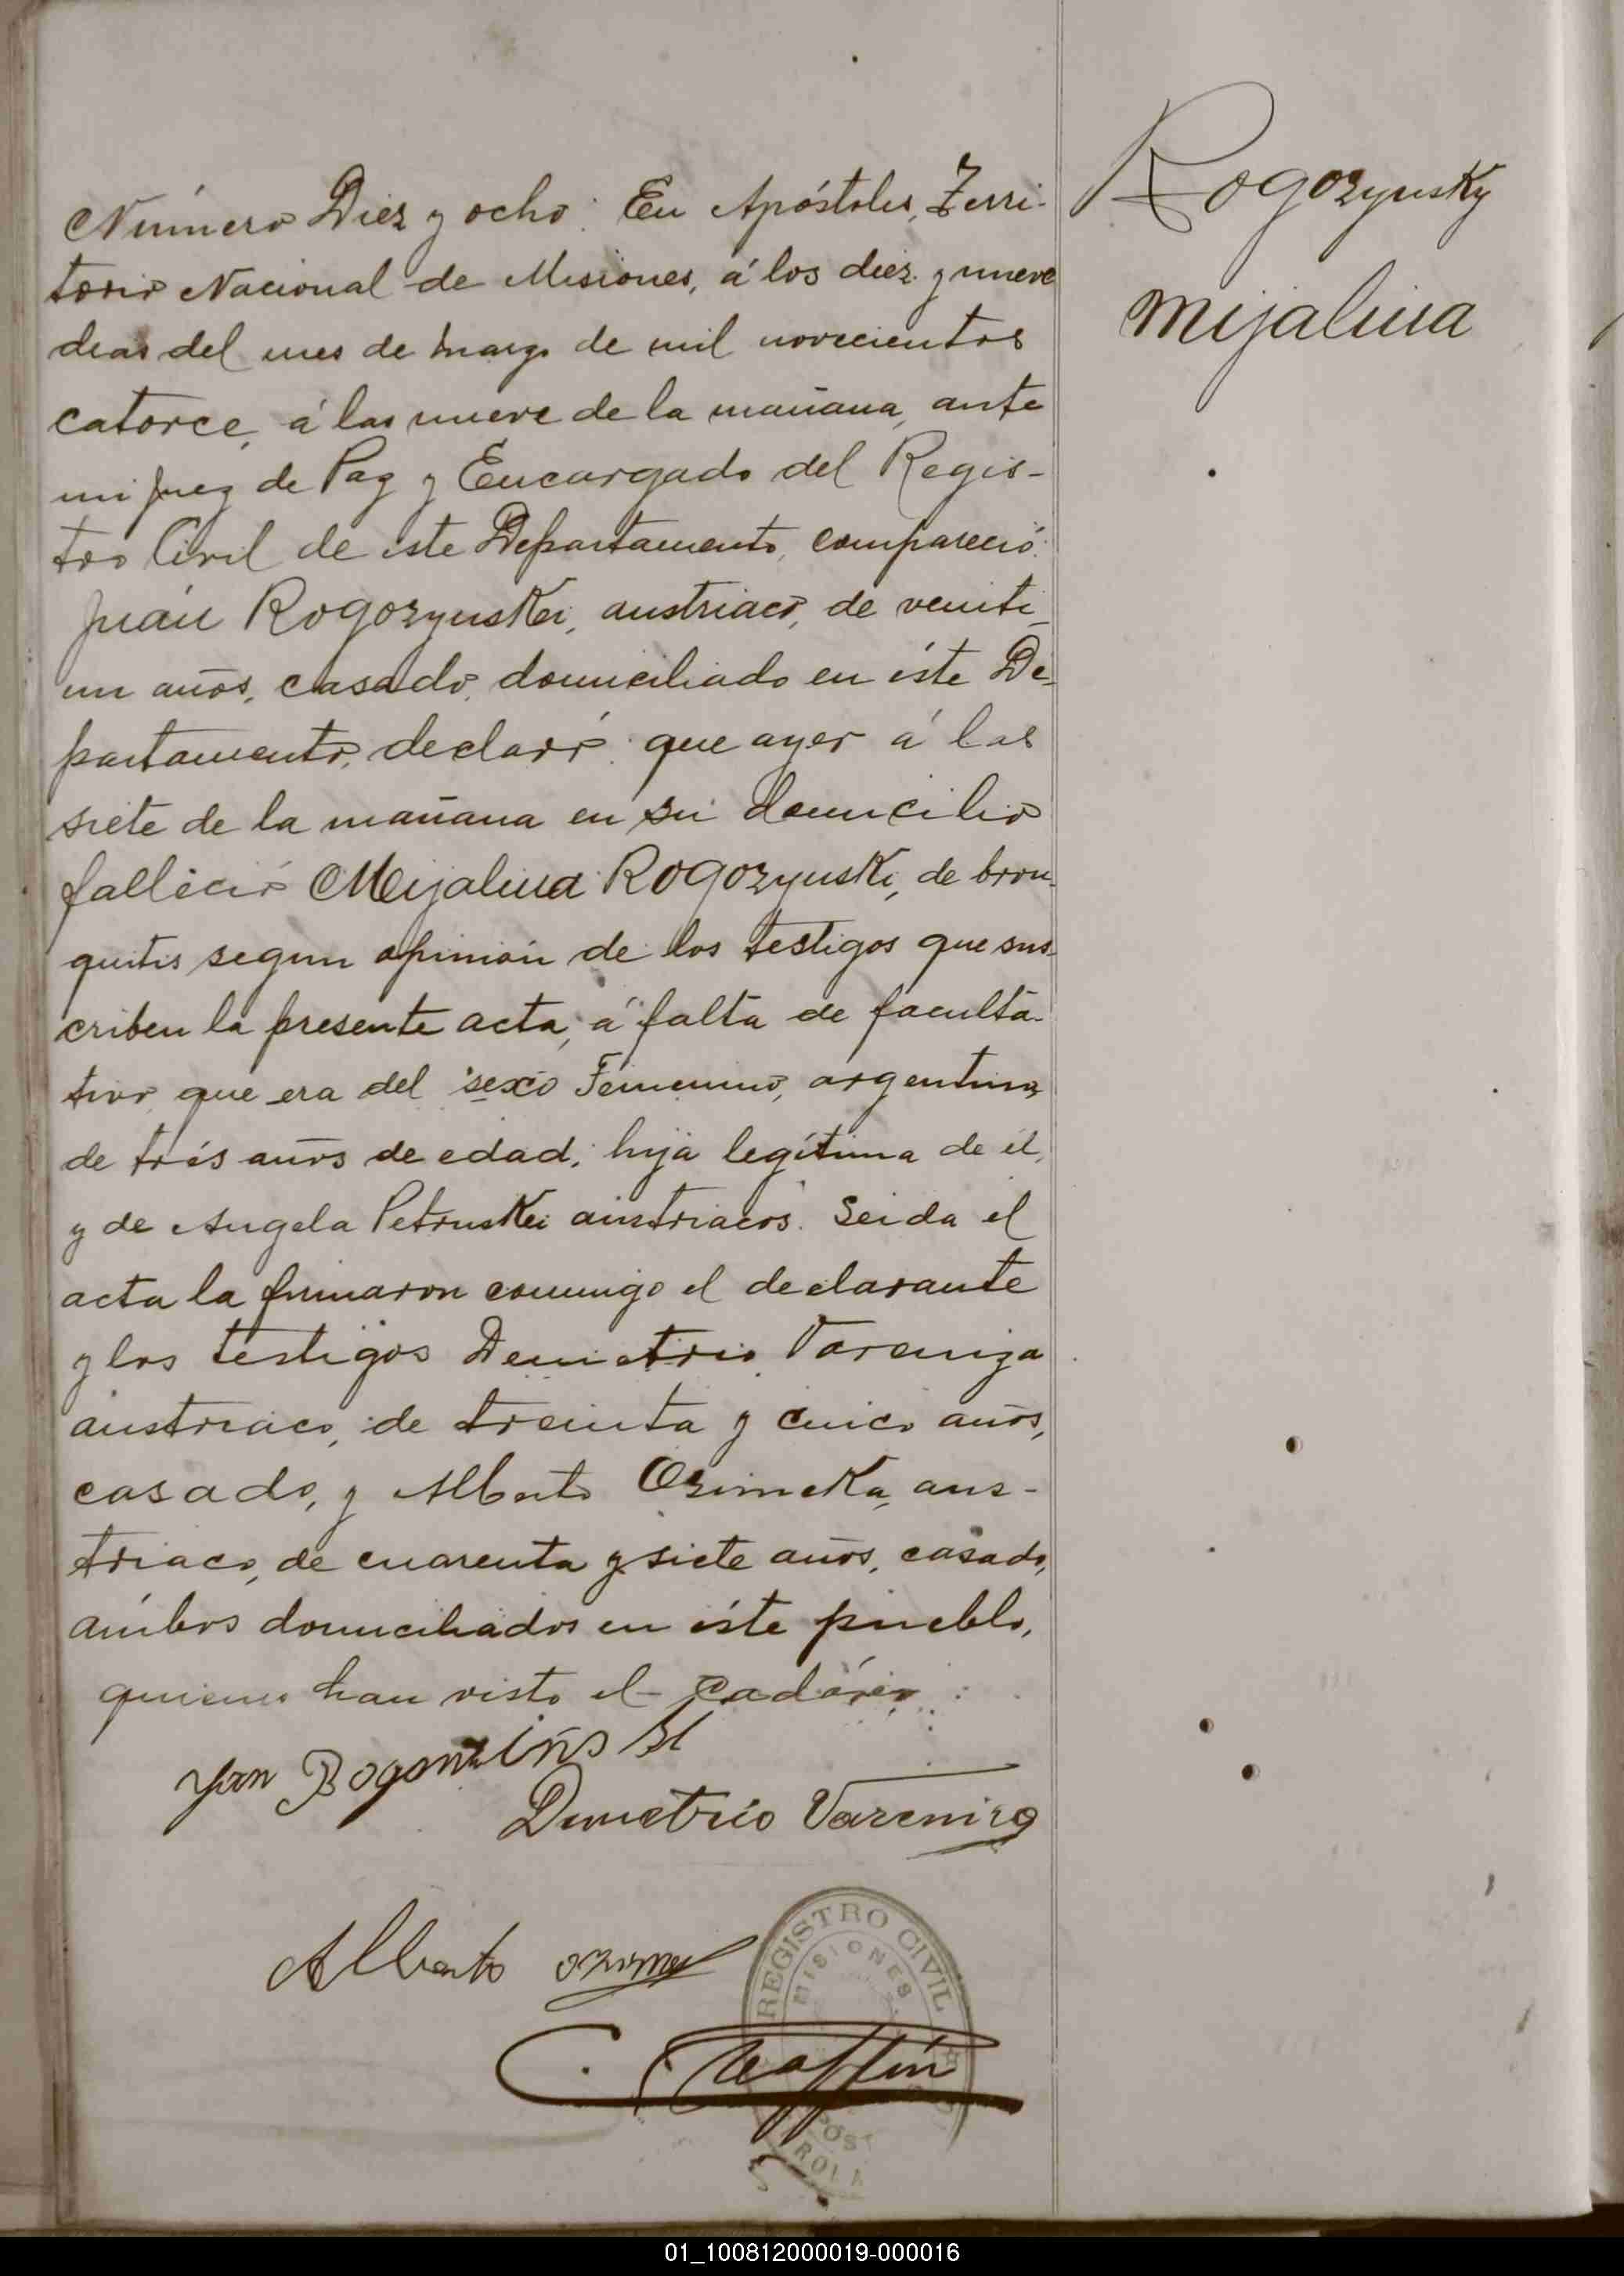 Rogozynsky
Mijalina
Número Diez y ocho: En Apóstoles, Terri-
torio Nacional de Misiones, á los diez y nueve
dias del mes de marzo de mil novecientos
catorce, á las nueve de la mañana, ante
mi Juez de Paz y Encargado del Regis-
tro Civil de este Departamento, compareció:
Juán Rogozynskei, austriaco, de veinti
un años, casado, domiciliado en éste De-
partamento, declaró: que ayer á las
siete de la mañana en su domicilio
falleció Mijalina Rogozynski, de bron-
quitis segun opinión de los testigos que sus-
criben la presente acta, á falta de faculta-
tivo, que era del sexo Femenino, argentina,
de trés años de edad; hija legítima de él,
y de Angela Petruskei austriacos. Leida el
acta la firmaron conmigo el declarante
y los testigos Demetrio Vareniza
austriaco, de treinta y cinco años,
casado, y Alberto Ozimeka, aus-
triaco, de cuarenta y siete años, casado,
ambos domiciliados en éste pueblo,
quienes han visto el cadáver:
Jan
Demetrio Vareniza
Alberto
REGISTRO CIVIL
MISIONES
01_100812000019-000016